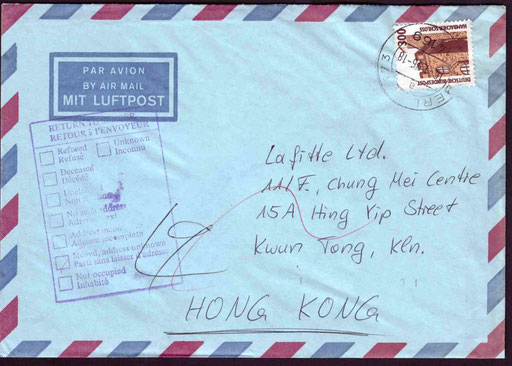 PAR AVION
BY AIR MAIL
MIT LUFTPOST
300
HAMBACHER SCHLOSS
DEUTSCHE BUNDESPOST
73
RETURN TO
RETOUR à l'ENVOYEUR
Refused
Refusé
Unknown
Inconnu
Deceased
Décédé
No such address
Address incom
Adresse incomplète
Moved, address unknown
Parti sans laisser d'adresse
Not occupied
Inhabité
Lafitte Ltd.
11/F., Chung Mei Centre
15A Hing Yip Street
Kwun Tong, Kln.
HONG KONG